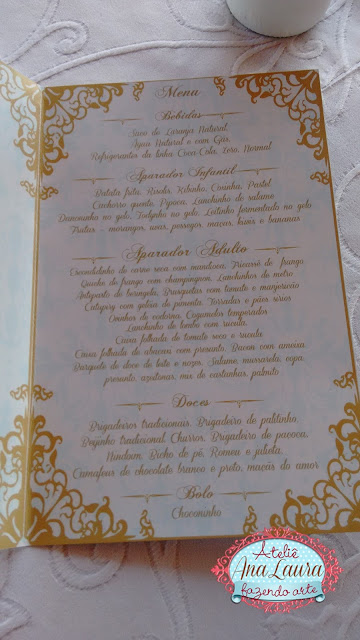 Menu
Bebidas
Suco de Laranja Natural
Água Natural e com Gás
Refrigerantes da linha Coca Cola, Zero, Normal
Aparador Infantil
Batata frita, Risolis, Kibinho, Coxinha, Pastel
Cachorro quente, Pipoca, Lanchinho de salame
Danoninho no gelo, Todynho no gelo, Leitinho fermentado no gelo
Frutas - morangos, uvas, pessegos, maças, kiwis e bananas
Aparador Adulto
Escondidinho de carne seca com mandioca, Fricassê de frango
Quiche de frango com champignon, Lanchinhos de metro
Antepasto de berinjela, Brusquetas com tomate e manjericão
Catupiry com geléia de pimenta, Torradas e pães sírios
Ovinhos de codorna, Cogumelos temperados
Lanchinho de lombo com rúcula
Coixa folhada de tomate seco e rúcula
Coixa folhada de abacaxi com presunto, Bacon com ameixa
Barquete de doce de leite e nozes, Salame, mussarela, copa,
presunto, azeitonas, mix de castanhas, palmito
Doces
Brigadeiros tradicionais, Brigadeiro de palitinho,
Beijinho tradicional, Churros, Brigadeiro de paçoca,
Nindam, Bicho de pé, Romeu e julieta,
Camafeus de chocolate branco e preto, maçãs do amor
Bolo
Choconinho
Ateliê
Ana Laura
fazendo arte